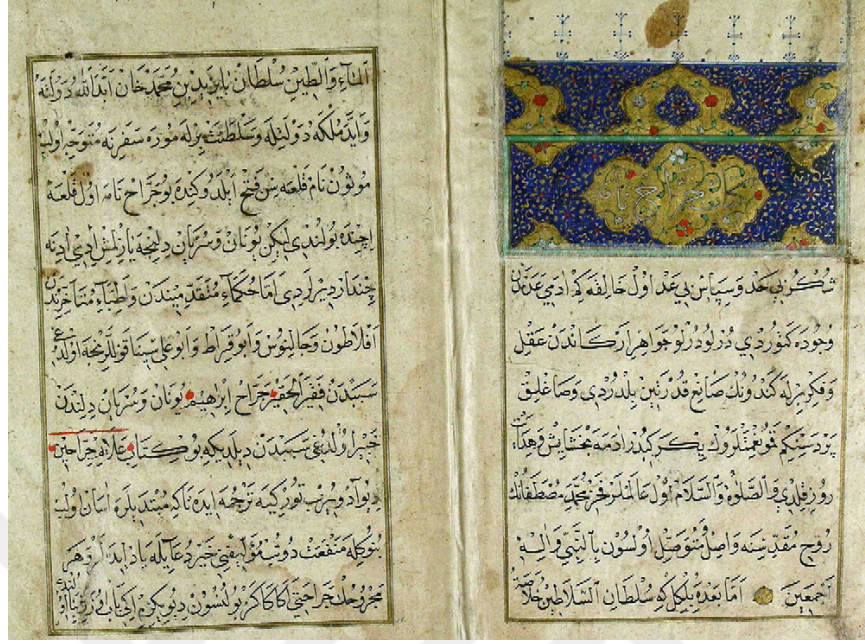 شكر بی حد و سپاس بی عد اول خالقه كه ادمی عدمدن
وجوده كتوردی درلو درلو جواهر اركاندن عقل
و فكر برله كندونك صانع قدرتين بلدردی و صاغلق
نعمتلروك يكركيدر ادمه بخشايش و هدآت
روز قلدی و الصلوة والسلام اول عالملر فخر محمد مصطفانك
روح مقدسنه واصل و متوصل اولسون بالنبی و اله
اجمعين اما بعده بلكل كه سلطان السلاطين خلاصة
الماء والطين سلطان بايزيد بن محمد خان ابد الله دولته
و ايد ملكه دولتله و سلطنت برله موره سفرينه متوجه اولب
موثون نام قلعه سن فتح ايلدوكنده بو جراح نامه اول قلعه
ايچنده بولندی ليكن يونان و سريان دلينجه يازلمش ايدی ادنه
چنداز ديرلردی اما حكماء متقدميندن و اطباء متأخريندن
افلاطون و جالينوس و ابوقراط و ابو علی سينا قوللرنجه اولدغی
سببدن فقير الحقير جراح ابراهيم يونان و سريان دلندن
خبير اولدغی سببدن ديلديكه بو كتابی علائم جراحين
ديو آد ويروب توركيه ترجمه ايده تاكه مبتديلره اسان اولب
بنوكله منفعت دوتب مؤلفنی خير دعا ايله ياد ايدلر و هر
مجروحك جراحتی بولسون ديو يكرم ايكی باب